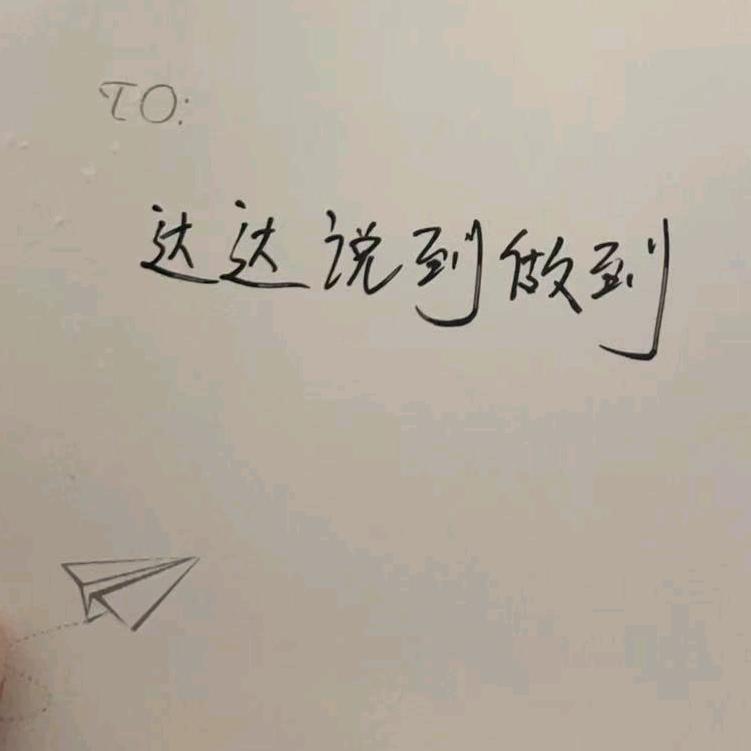 TO:
达达说到做到